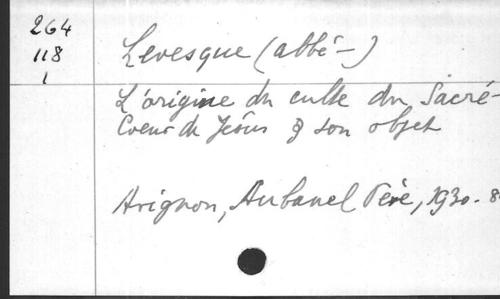 264
118
1
Levesque (abbé -)
L'origine du culte du Sacré-
Coeur de Jésus & son objet
Avignon, Aubanel Père, 1930. 8